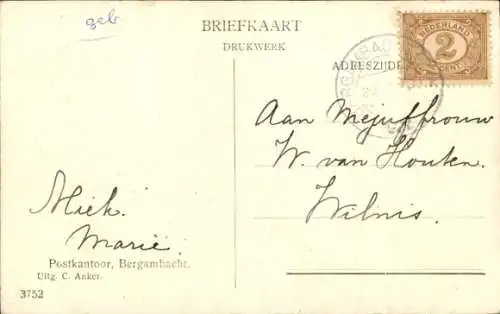 geb
BRIEFKAART
DRUKWERK
ADRESZIJDE
NEDERLAND
2
CENT
Aan Mejuffrouw
W. van Houten.
Wilnis.
Miek.
Marie.
Postkantoor, Bergambacht.
Uitg. C. Anker.
3752